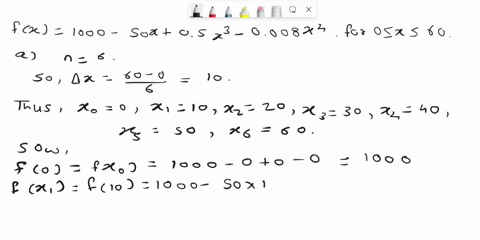 f(x) = 1000 - 50x + 0.5x³ - 0.008x⁴ for 0≤x≤60.
a) n = 6.
So, Δx = (60-0)/6 = 10.
Thus, x₀ = 0, x₁ = 10, x₂ = 20, x₃ = 30, x₄ = 40,
x₅ = 50, x₆ = 60.
Sow,
f(0) = fx₀) = 1000 - 0 + 0 - 0 = 1000
f(x₁) = f(10) = 1000 - 50×1